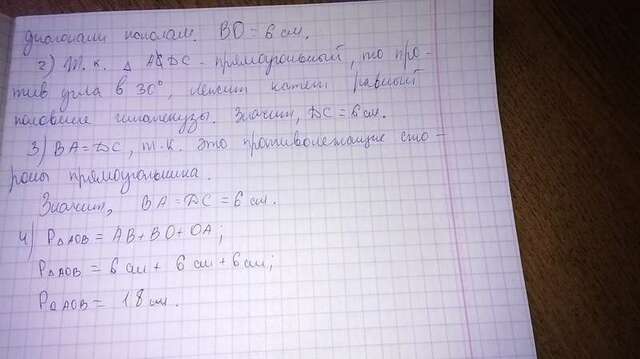 диагонали пополам. BO = 6 см.
2) Т.к. Δ ADC - прямоугольный, то про-
тив угла в 30°, лежит катет равный
половине гипотенузы. Значит, DC = 6 см.
3) BA = DC, т.к. это противолежащие сто-
роны прямоугольника.
Значит, BA = DC = 6 см.
4) PΔAOB = AB + BO + OA;
PΔAOB = 6 см + 6 см + 6 см;
PΔAOB = 18 см.